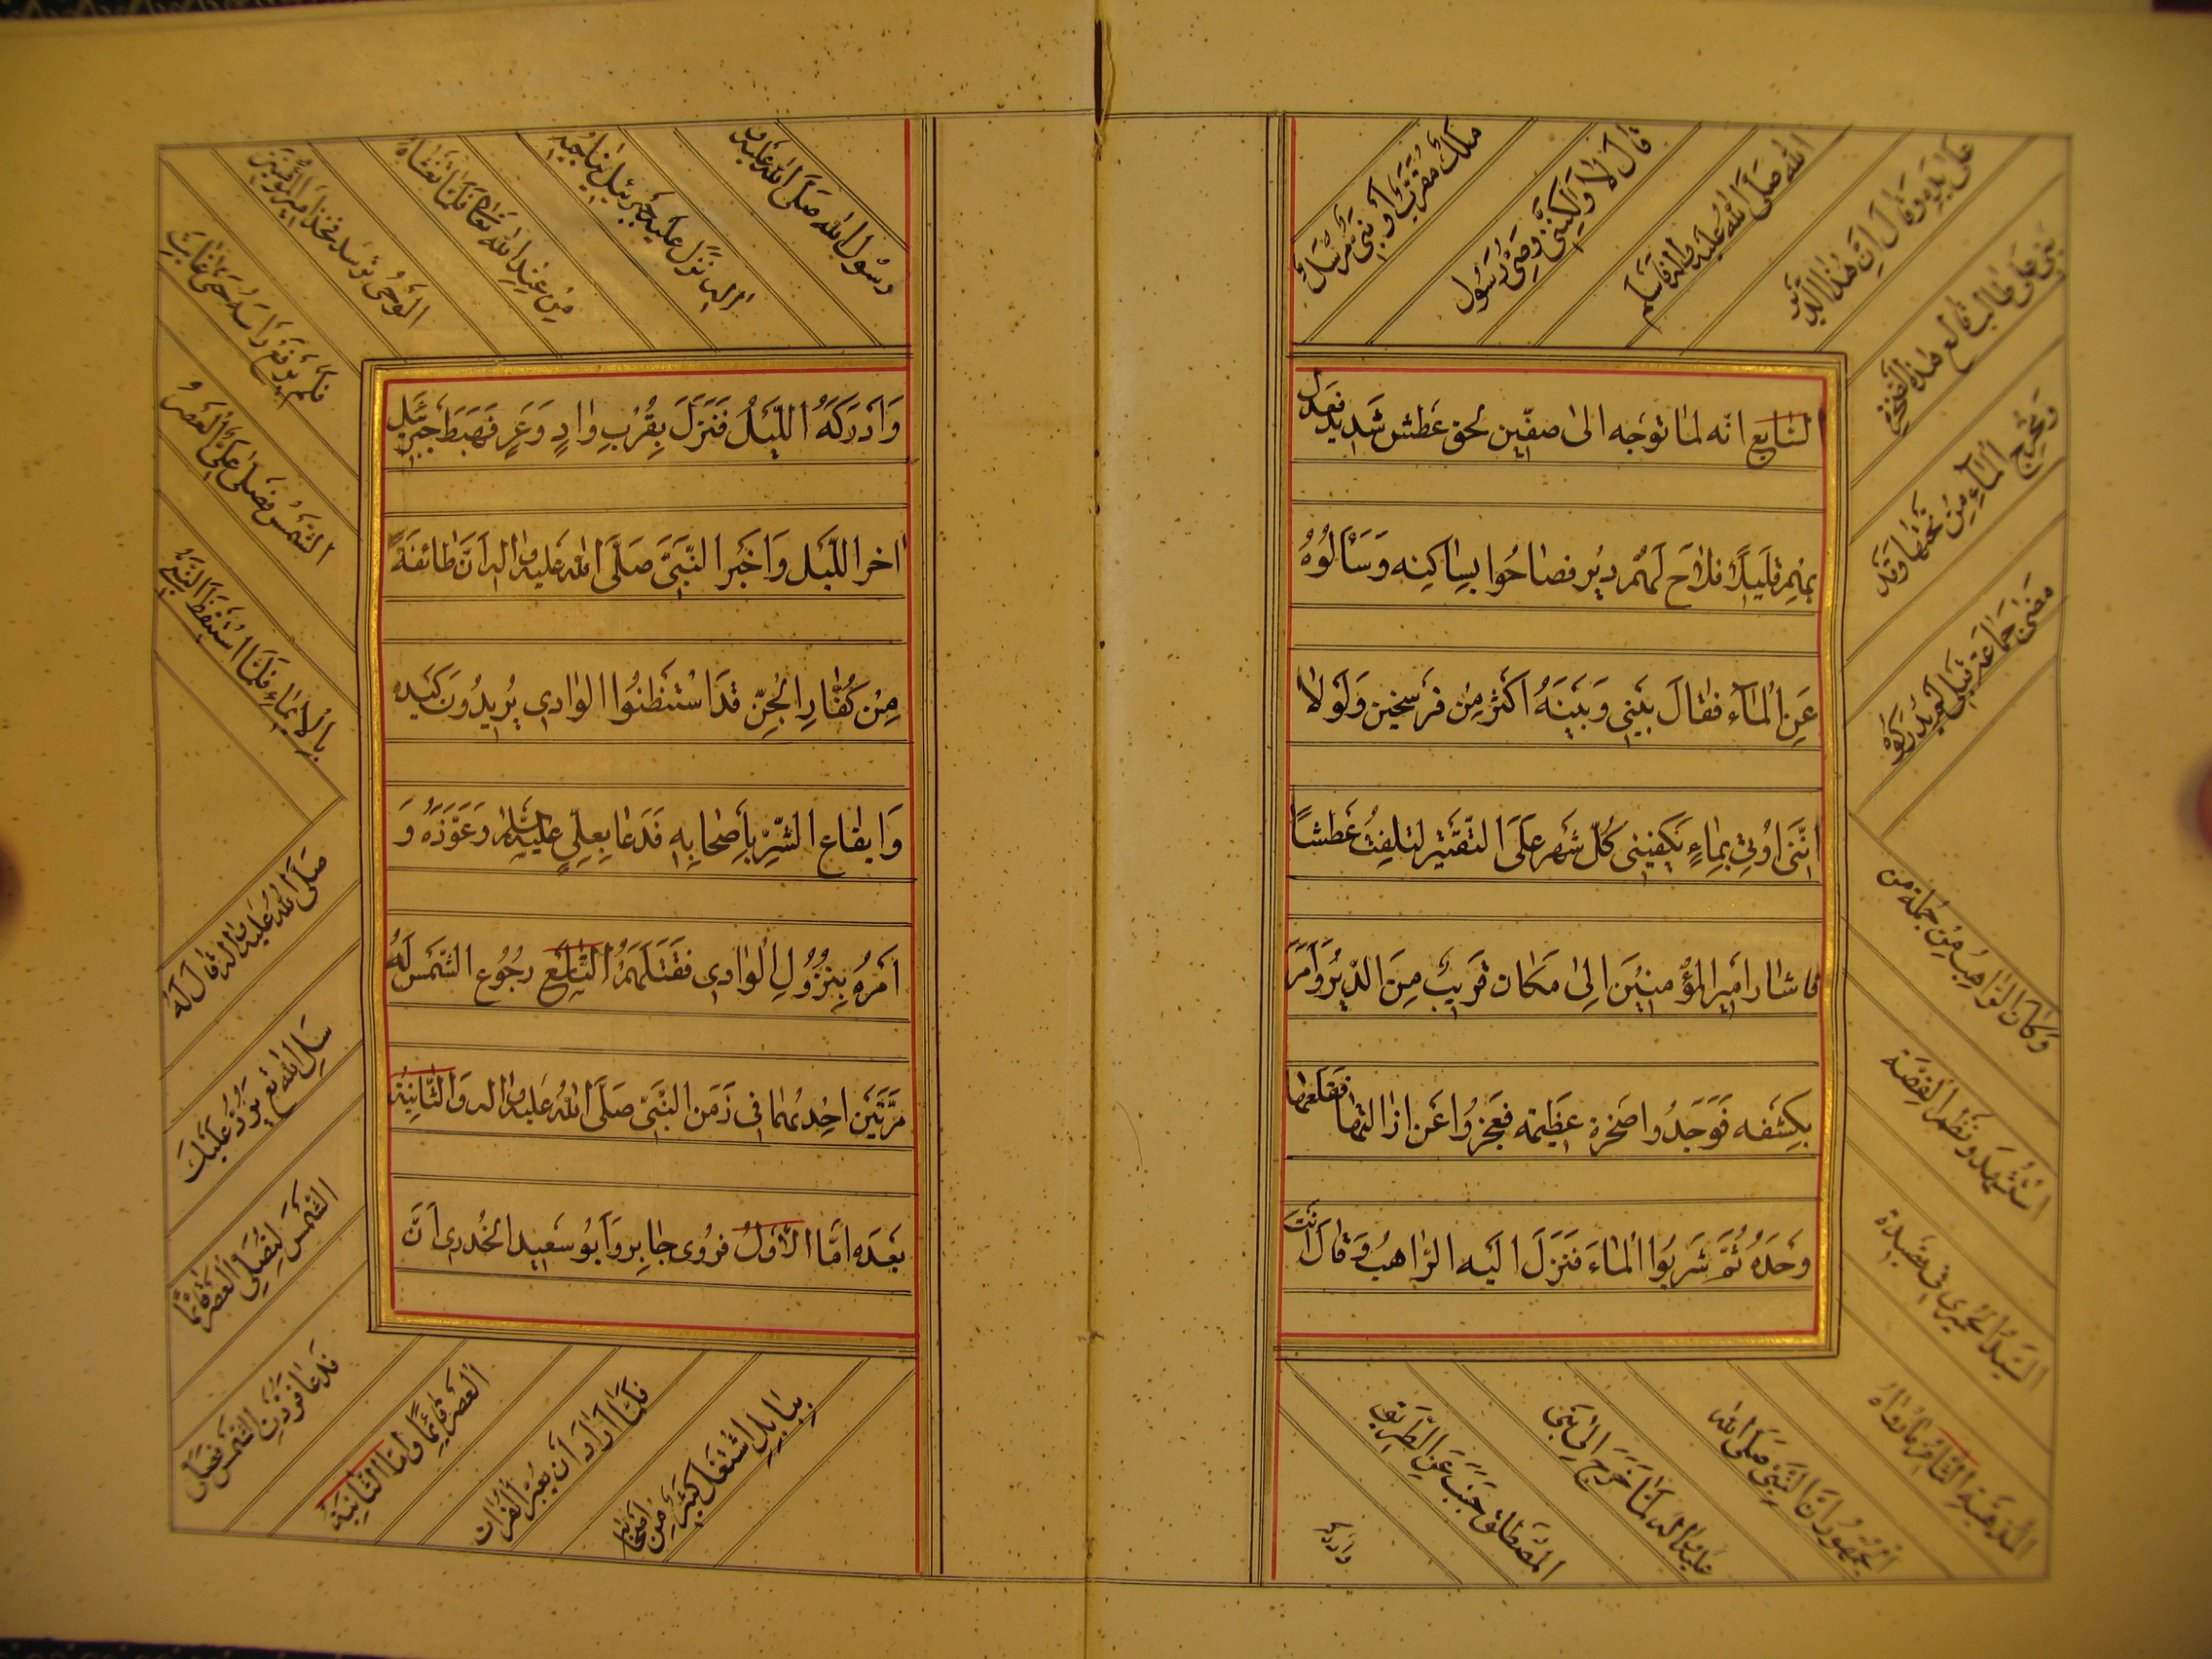 السابع انه لما توجه الى صفين لحق عطش شديد فعدل
بهم قليلا فلاح لهم دير فصاحوا بساكنه وسألوه
عن الماء فقال بيني وبينه اكثر من فرسخين ولولا
انني اوتي بماء يكفيني كل شهر على التقتير لتلفت عطشا
فاشار امير المؤمنين الى مكان قريب من الدير وامر
بكشفه فوجدوا صخرة عظيمة فعجزوا عن ازالتها فقلعها
وحده ثم شربوا الماء فنزل اليه الراهب وقال انت
ملك مقرب او نبي مرسل
قال لا ولكنني وصي رسول
الله صلى الله عليه واله فاسلم
على يده وقال ان هذا الدير
بني على طالب قالع هذه الصخرة
ومخرج الماء من تحتها وقد
مضى جماعة قبلي لم يدركوه
وكان الراهب من جملة من
استشهد ونظم القصة
السيد الحميري في قصيدة
المذهبة الثامن ما رواه
الجمهور ان النبي صلى الله
عليه واله لما خرج الى بني
المصطلق جنب عن الطريق
وادركه
وادركه الليل فنزل بقرب واد وعر فهبط جبرئيل
اخر الليل واخبر النبي صلى الله عليه واله ان طائفة
من كفار الجن قد استبطنوا الوادي يريدون كيده
وايقاع الشر باصحابه فدعا بعلي عليه السلام وعوذه و
امره بنزول الوادي فقتلهم التاسع رجوع الشمس له
مرتين احديهما في زمن النبي صلى الله عليه واله والثانية
بعده اما الاول فروى جابر وابو سعيد الخدري ان
رسول الله صلى الله عليه و
اله نزل عليه جبرئيل يناجيه
من عند الله تعالى فلما تغشاه
الوحي توسد فخذ امير المؤمنين
فلم يرفع راسه حتى غابت
الشمس فصلى علي العصر و
بالايماء فلما استيقظ النبي
صلى الله عليه واله قال له
سل الله تع يرد عليك
الشمس لتصلي العصر قائما
فدعا فردت الشمس فصلى
العصر قائما واما الثانية
فلما اراد ان يعبر الفرات
ببابل اشتغل كثير من اصحابه